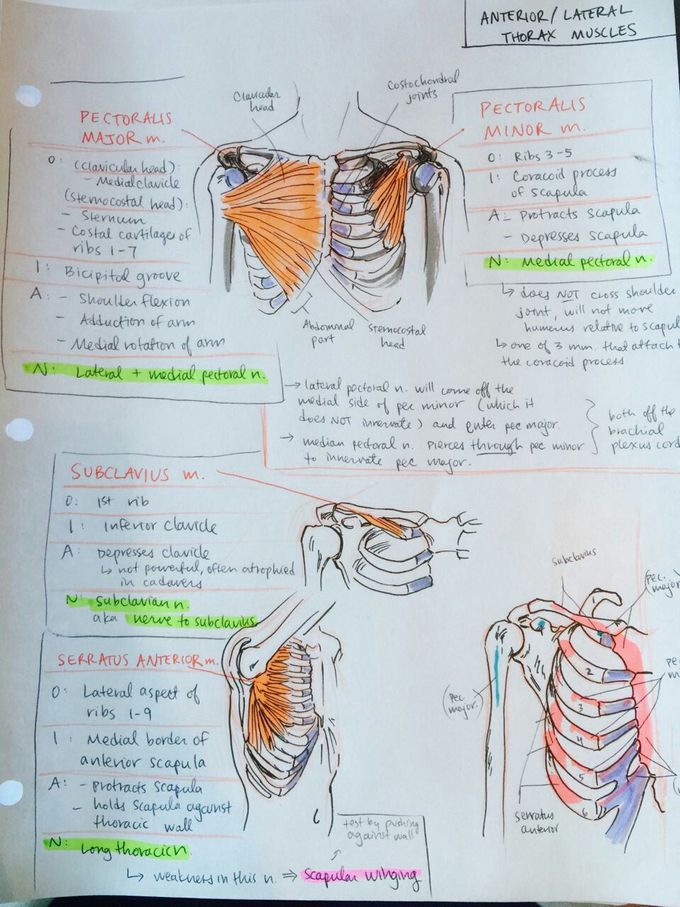 ANTERIOR/LATERAL
THORAX MUSCLES
PECTORALIS
MAJOR m.
O: (clavicular head):
- Medial clavicle
(sternocostal head):
- Sternum
- Costal cartilages of
ribs 1-7
I: Bicipital groove
A: - Shoulder flexion
- Adduction of arm
- Medial rotation of arm
N: Lateral + medial pectoral n.
Clavicular
head
Costochondral
joints
Abdominal
part
Sternocostal
head
PECTORALIS
MINOR m.
O: Ribs 3-5
I: Coracoid process
of scapula
A: - Protracts scapula
- Depresses scapula
N: Medial pectoral n.
↳ does NOT cross shoulder
joint, will not move
humerus relative to scapul
↳ one of 3 mm. that attach t
the coracoid process
→ lateral pectoral n. will come off the
medial side of pec minor (which it
does NOT innervate) and enter pec major.
→ median pectoral n. pierces through pec minor
to innervate pec major.
both off the
brachial
plexus cord
SUBCLAVIUS m.
O: 1st rib
I: Inferior clavicle
A: Depresses clavicle
↳ not powerful, often atrophied
in cadavers
N: Subclavian n.
aka nerve to subclavius
SERRATUS ANTERIOR m.
O: Lateral aspect of
ribs 1-9
I: Medial border of
anterior scapula
A: - Protracts scapula
- holds scapula against
thoracic wall
N: Long thoracic n
↳ weakness in this n. ⇒ scapular winging
test by pushing
against wall
subclavius
(pec.
major)
(pec
major)
2
3
4
5
6
serratus
anterior